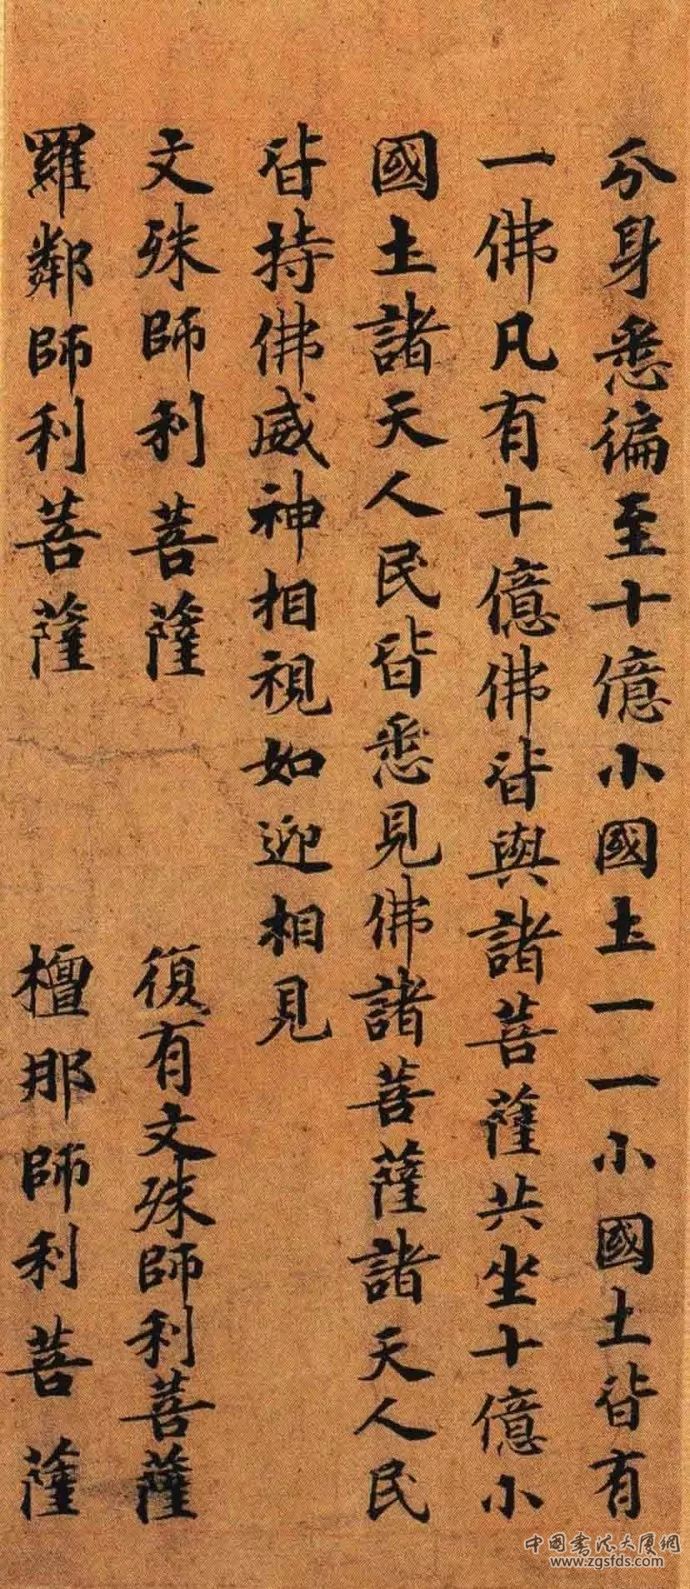 分身悉徧至十億小國土一一小國土皆有
一佛凡有十億佛皆與諸菩薩共坐十億小
國土諸天人民皆悉見佛諸菩薩諸天人民
皆持佛威神相視如迎相見
文殊師利菩薩 復有文殊師利菩薩
羅鄰師利菩薩 檀那師利菩薩
中国书法大厦网
www.zgsfds.com